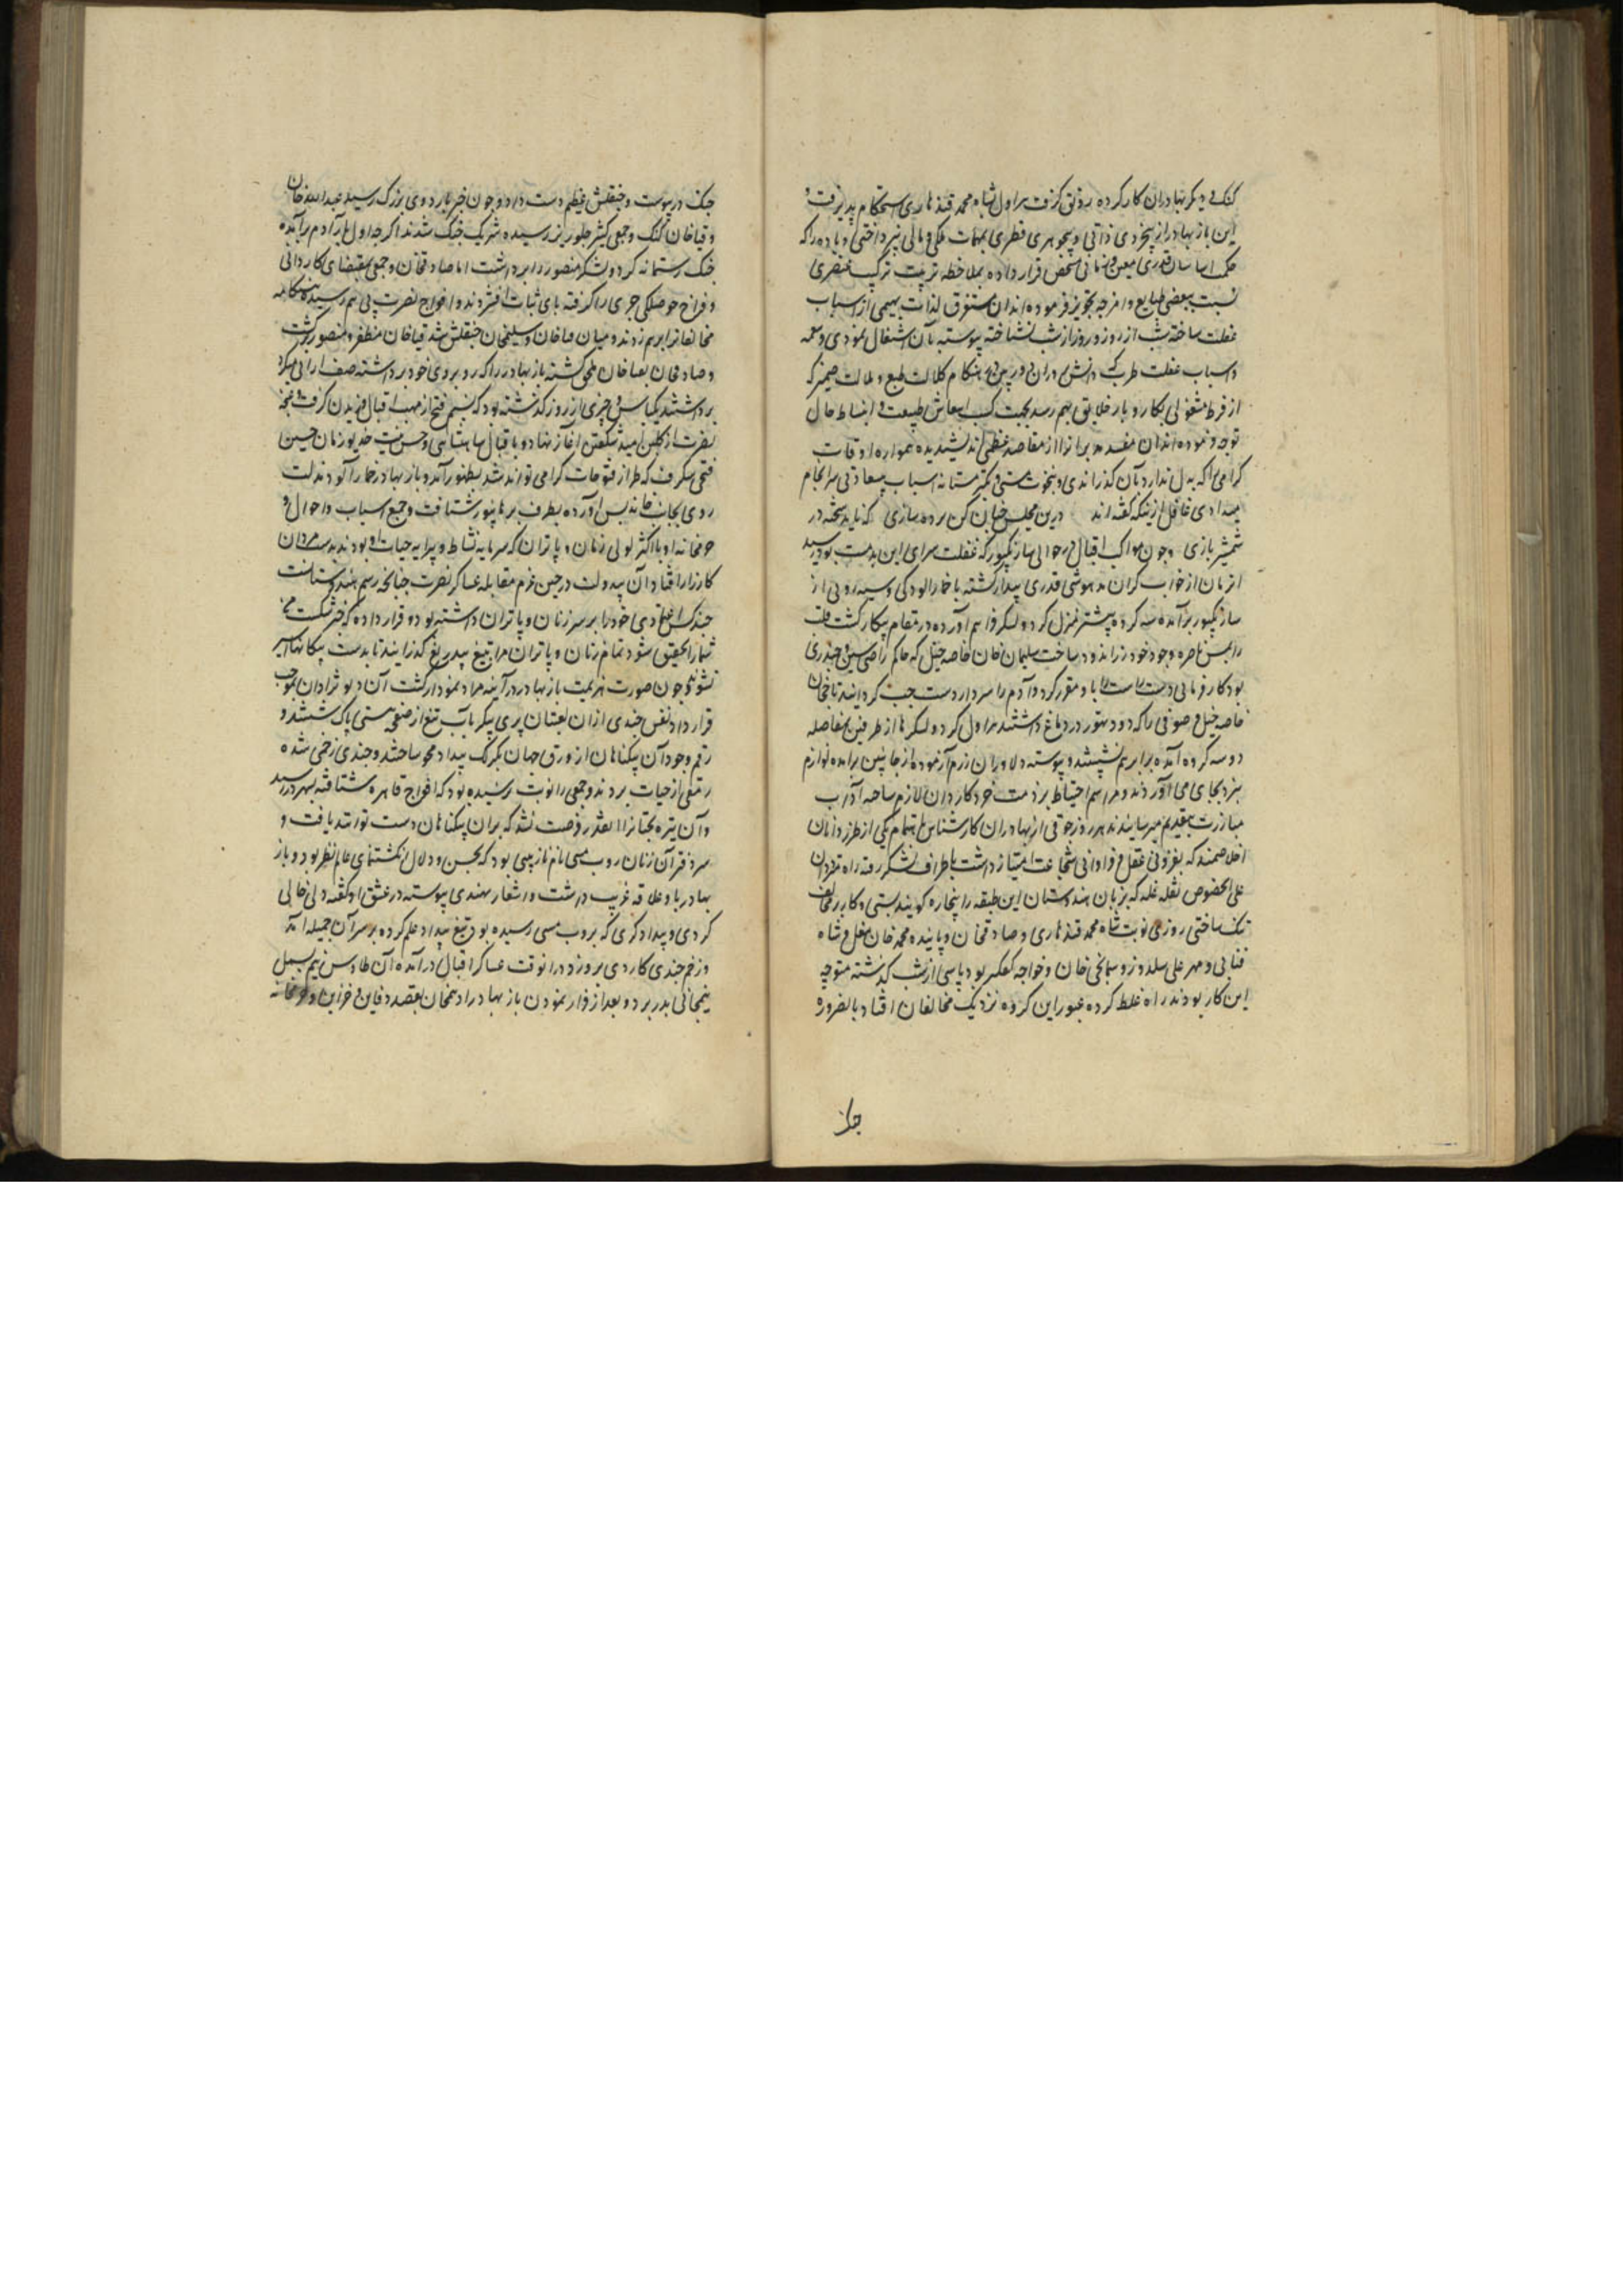 کنک و دیکر بهادران کارکرده رونق کرفت هراول شاه محمد قندهاری استحکام پذیرفت و
این باز بهادر از بیخردی ذاتی و بیجوهری فطری بمهمات ملکی و مالی نپرداختی و باده را که
حکما سال قدری معین و زمانی مشخص قرار داده بملاحظه تربیت ترکیب عنصری
نسبت ببعضی طبایع و امزجه تجویز فرموده اند آن مستغرق لذات بهیمی از اسباب
غفلت ساخته شب از روز و روز از شب نشناخته پیوسته بآن اشتغال نمودی و نغمه
و اسباب غفلت طرب که دانش وران دوربین در هنکام کلالت طبع و ملالت ضمیر که
از فرط مشغولی بکار و بار خلایق بهم رسد بجهت کسب انتعاش طبیعت و انبساط حال
توجه فرموده اند آن مفسده پیرا آنرا از مقاصد عظمی اندیشیده همواره اوقات
کرامی را که بدل ندارد بآن کذراندی و بنخوت مستی و تکبر مستانه اسباب بیسعادتی سرانجام
میدادی غافل ازینکه کفته اند درین مجلس چنان کن پرده سازی که ناید شحنه در
شمشیربازی و چون مواکب اقبال در حوالی سارنکپور که غفلت سرای این بدمست بود رسید
از زمان از خواب کران مدهوشی قدری بیدار کشته با خمارآلودکی و سیه روئی از
سارنکپور برآمده سه کروه پیشتر منزل کرد و لشکر فراهم آورده در مقام پیکار کشت قلب
را بحبس ناصره وجود خود زراندود ساخت سلیمان خان خاصه خیل که حاکم رایسین و چندیری
بود کارفرمائی دست راست را باو مقرر کرد و آدم را سردار دست چپ کردانید تاج خان
خاصه خیل و صوفی را که دود تهور در دماغ داشتند هراول کرد و لشکرها از طرفین بفاصله
دو سه کروه آمده برابر هم نشستند و پیوسته دلاوران رزم آزموده از جانبین برآمده لوازم
نبرد بجای می آوردند و مراسم احتیاط بر ذمت خرد کاردان لازم ساخته آداب
مبارزت بتقدیم میرسانیدند هر روز جوقی از بهادران کارشناس باهتمام یکی از طرزدانان
اخلاصمند که بفزونی عقل و فراوانی شجاعت امتیاز داشت باطراف لشکر رفته راه مترددان
علی الخصوص نقله غله که بزبان هندوستان این طبقه را بنجاره کویند بستی و کار بر مخالف
تنک ساختی روزی نوبت شاه محمد قندهاری و صادقخان و پاینده محمد خان مغل و شاه
فنائی و مهر علی سلدوز و سمانجی خان و خواجه کعکسر بود پاسی از شب کذشته متوجه
این کار بودند راه غلط کرده عبور این کروه نزدیک مخالفان افتاد بالضروره
جنک
جنک درپیوست و چپقلش عظیم دست داد و چون خبر باردوی بزرک رسید عبدالله خان
و قیاخان کنک و جمعی کثیر جلوریز رسیده شریک جنک شدند اکرچه اول بار آدم برآمده
جنک رستمانه کرد و لشکر منصور را برداشت اما صادقخان و جمعی بمقتضای کاردانی
و فراخ حوصلکی جری را کرفته پای ثبات افشردند و افواج نصرت پی هم رسیده هنکامه
مخالفانرا برهم زدند و میان قیاخان و سلیمخان چپقلش شد قیاخان مظفر و منصور برکشت
و صادقخان بقیاخان ملحق کشته باز بهادر را که روبروی خود برداشته صف آرائی میکرد
برداشتند یکپاس و چیزی از روز کذشته بود که نسیم فتح از مهب اقبال وزیدن کرفت و غنچه
نصرت از کلبن امید شکفتن آغاز نهاد و باقبال شاهنشاهی و حسن نیت خدیو زمان چنین
فتحی شکرف که طراز فتوحات کرامی تواند شد بظهور آمد و باز بهادر خمارآلود مذلت
روی بجانب خاندیس آورده بطرف برهانپور شتافت و جمیع اسباب و احوال و
حرمخانه او با اکثر لولی زنان و پاتران که سرمایه نشاط و پیرایه حیات او بودند بدست مردان
کارزار افتاد آن بیدولت در حین عزم مقابله عساکر نصرت چنانچه رسم هندوستانست
چند کس اعتمادی خود را بر سر زنان و پاتران داشته بود و قرار داده که خبر شکست من
شما را تحقیق شود تمام زنان و پاتران مرا بتیغ بیدریغ کذرانید تا بدست بیکانها اسیر
نشوند چون صورت هزیمت باز بهادر در آینه مراد نمودار کشت آن دیونژادان بموجب
قرارداد نفس چندی ازان لعبتان پری پیکر بآب تیغ از صفحه هستی پاک شستند و
رقم وجود آن بیکناهان از ورق جهان بکزلک بیداد محو ساختند و چندی زخمی شده
رمقی از حیات بردند و جمعی را نوبت نرسیده بود که افواج قاهره شتافته بشهر دررسید
و آن تیره بختانرا آنقدر فرصت نشد که بران بیکناهان دست توانند یافت و
سردفتر آن زنان روپ متی نام نازنینی بود که بحسن و دلال انکشت نمای عالم نظر بود و باز
بهادر باو علاقه غریب داشت و اشعار هندی پیوسته در عشق او کفته دلی خالی
کردی و بیدادکری که بروپ متی رسیده بود تیغ بیداد علم کرده بر سر آن جمیله آمد
و زخم چندی کاردی برو زد درانوقت عساکر اقبال درآمده آن طاوس نیم بسمل
نیمجانی بدر برد و بعد از فرار نمودن باز بهادر ادهمخان بقصد دفاین و خزاین و حرمخانه